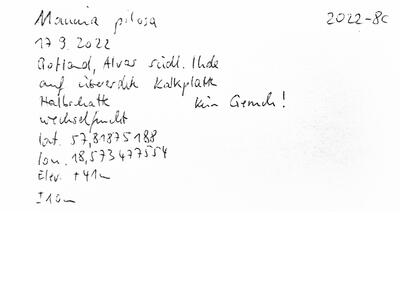 Mannia pilosa 2022-8c
17.9.2022
Gotland, Alvar südl. Ihde
auf übererdeter Kalkplatte
Halbschatten kein Geruch!
wechselfeucht
lat. 57,81875188
lon. 18,573477554
Elev. +41m
±10m